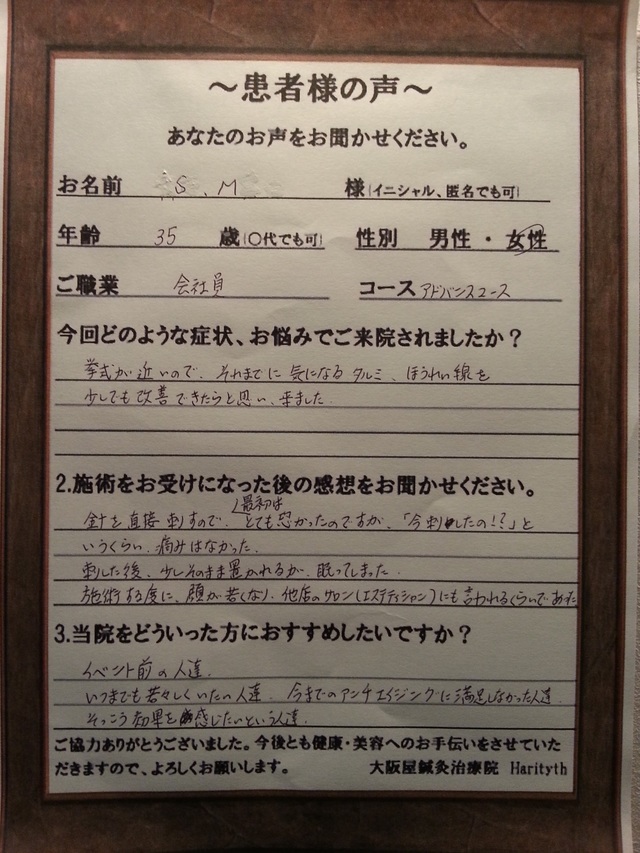 ～患者様の声～
あなたのお声をお聞かせください。
お名前 S.M 様(イニシャル、匿名でも可)
年齢 35 歳(○代でも可) 性別 男性・女性
ご職業 会社員 コース アドバンスコース
今回どのような症状、お悩みでご来院されましたか？
挙式が近いので、それまでに気になるタルミ、ほうれい線を
少しでも改善できたらと思い、来ました
2.施術をお受けになった後の感想をお聞かせください。
針を直接刺すので、最初はとても恐かったのですが、「今刺したの!?」と
いうくらい、痛みはなかった。
刺した後、少しそのまま置かれるが、眠ってしまった。
施術する度に、顔が若くなり、他店のサロン(エステティシャン)にも言われるくらいであった
3.当院をどういった方におすすめしたいですか？
イベント前の人達。
いつまでも若々しくいたい人達、今までのアンチエイジングに満足しなかった人達
そっこう効果を感じたいという人達。
ご協力ありがとうございました。今後とも健康・美容へのお手伝いをさせていた
だきますので、よろしくお願いします。 大阪屋鍼灸治療院 Harityth